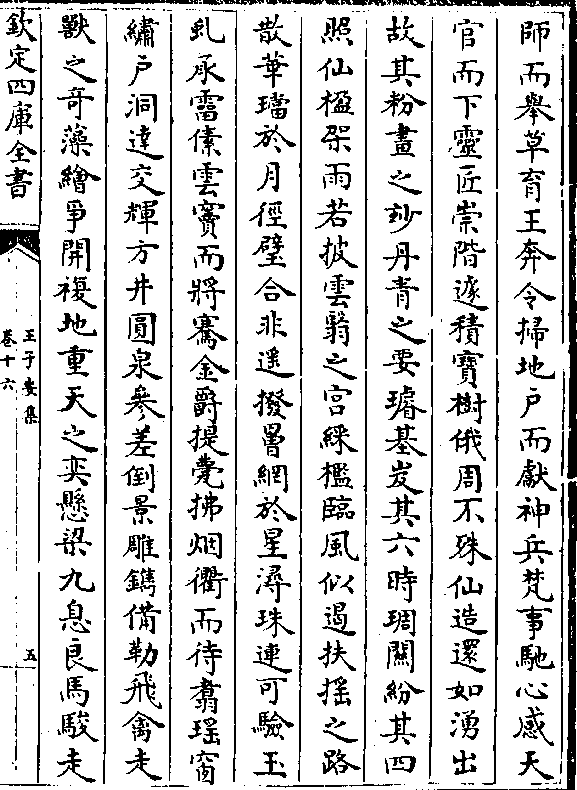 師而舉草育王奔令掃地户而獻神兵梵事馳心感天
官而下靈匠崇階遽積寶樹俄周不殊仙造還如湧出
故其粉畫之妙丹青之要璿基岌其六時琱闗紛其四
照仙楹架雨若披雲翳之宫綵檻臨風似遏扶摇之路
散華璫於月徑璧合非遥撥罾網於星潯珠連可驗玉
虬承霤傃雲竇而將騫金爵提甍拂烟衢而待翥瑶窗
繡户洞達交輝方井圓泉參差倒景雕鐫備勒飛禽走
獸之奇藻繪争開複地重天之奕懸梁九息良馬駿走
欽定四庫全書
王子安集
卷十六
五